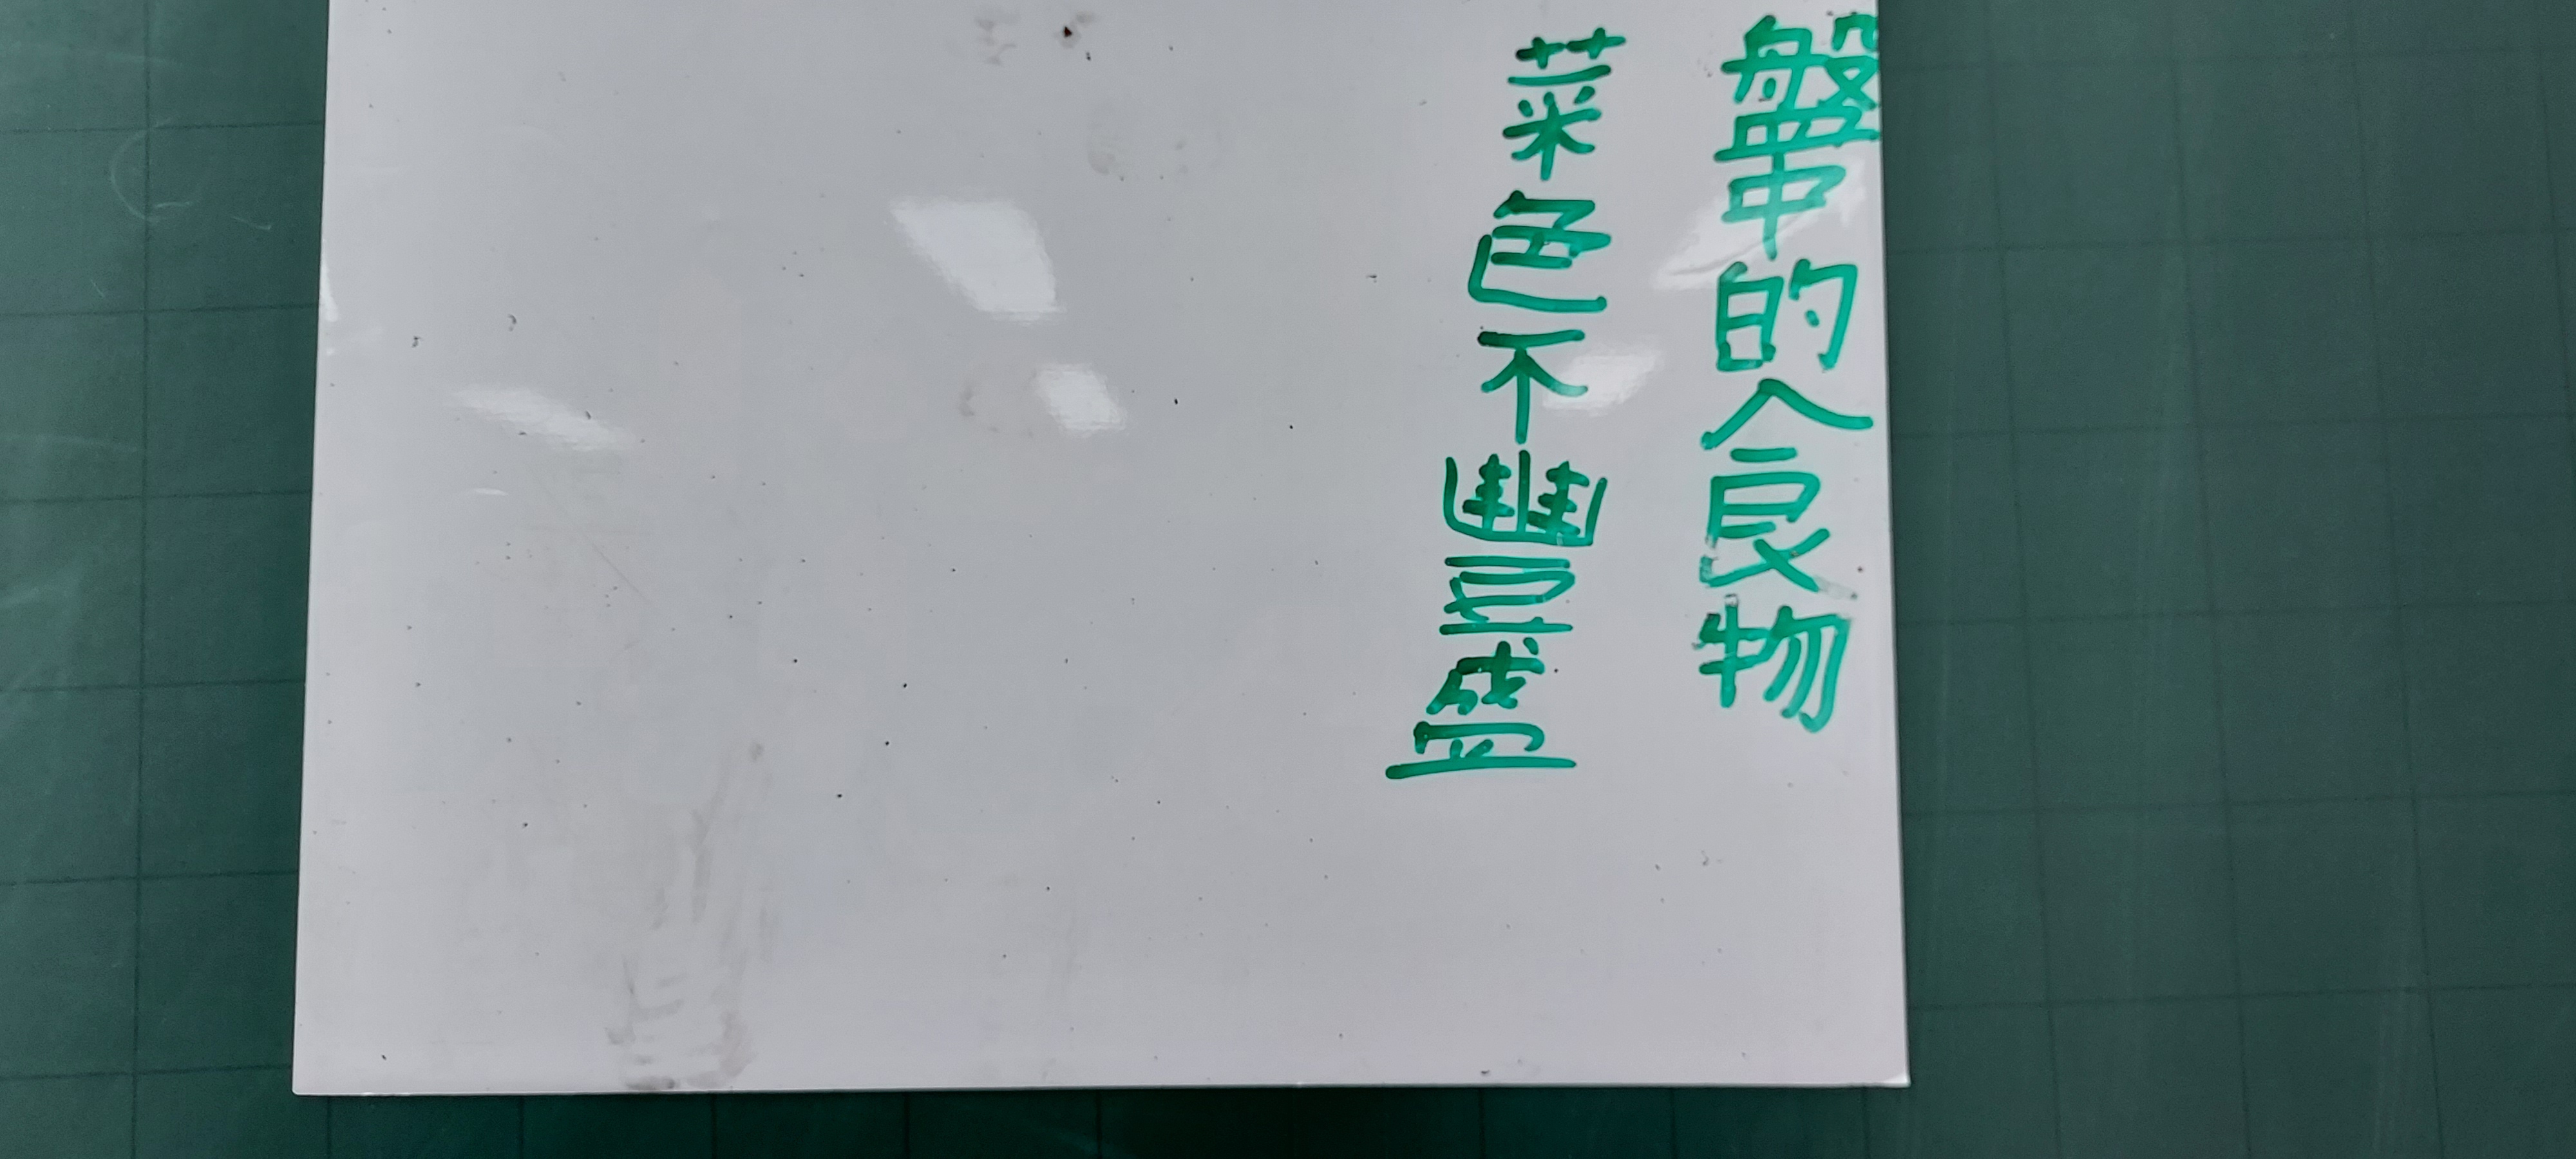 盤中的食物
菜色不豐盛